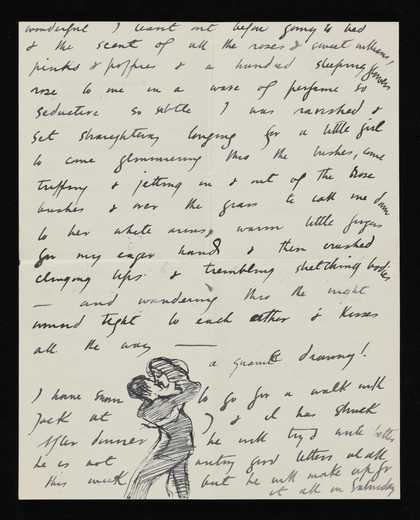 wonderful I leant out before going to bed
& the scent of all the roses & sweet williams,
pinks & poppies & a hundred sleeping flowers
rose to me in a wave of perfume so
seductive so subtle I was ravished &
set straightway longing for a little girl
to come glimmering thro the bushes, come
tripping & in & out of the Rose
bushes & over the grass to call me down
to her white arms, warm little fingers
for my eager hands & then crushed
clinging lips & trembling stretching bodies
— and wandering thro the night
wound tight to each other & Kisses
all the way —
a drawing!
I have soon to go for a walk with
Jack at & it has struck
After dinner he will try & write better
he is not writing good letters at all
this week but he will make up for
it all on Saturday